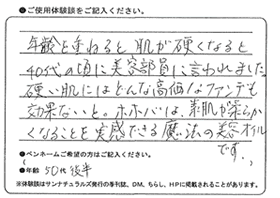 ●ご使用体験談をご記入ください。
年齢を重ねると肌が硬くなると
40代の頃に美容部員に言われました
硬い肌にはどんな高価なファンデも
効果ないと。ホホバは、素肌が柔らか
くなることを実感できる魔法の美容オイル
です。
●ペンネームご希望の方はご記入ください。
( )
●年齢 50代後半
※体験談はサンナチュラルズ発行の季刊誌、DM、ちらし、HPに掲載されることがあります。